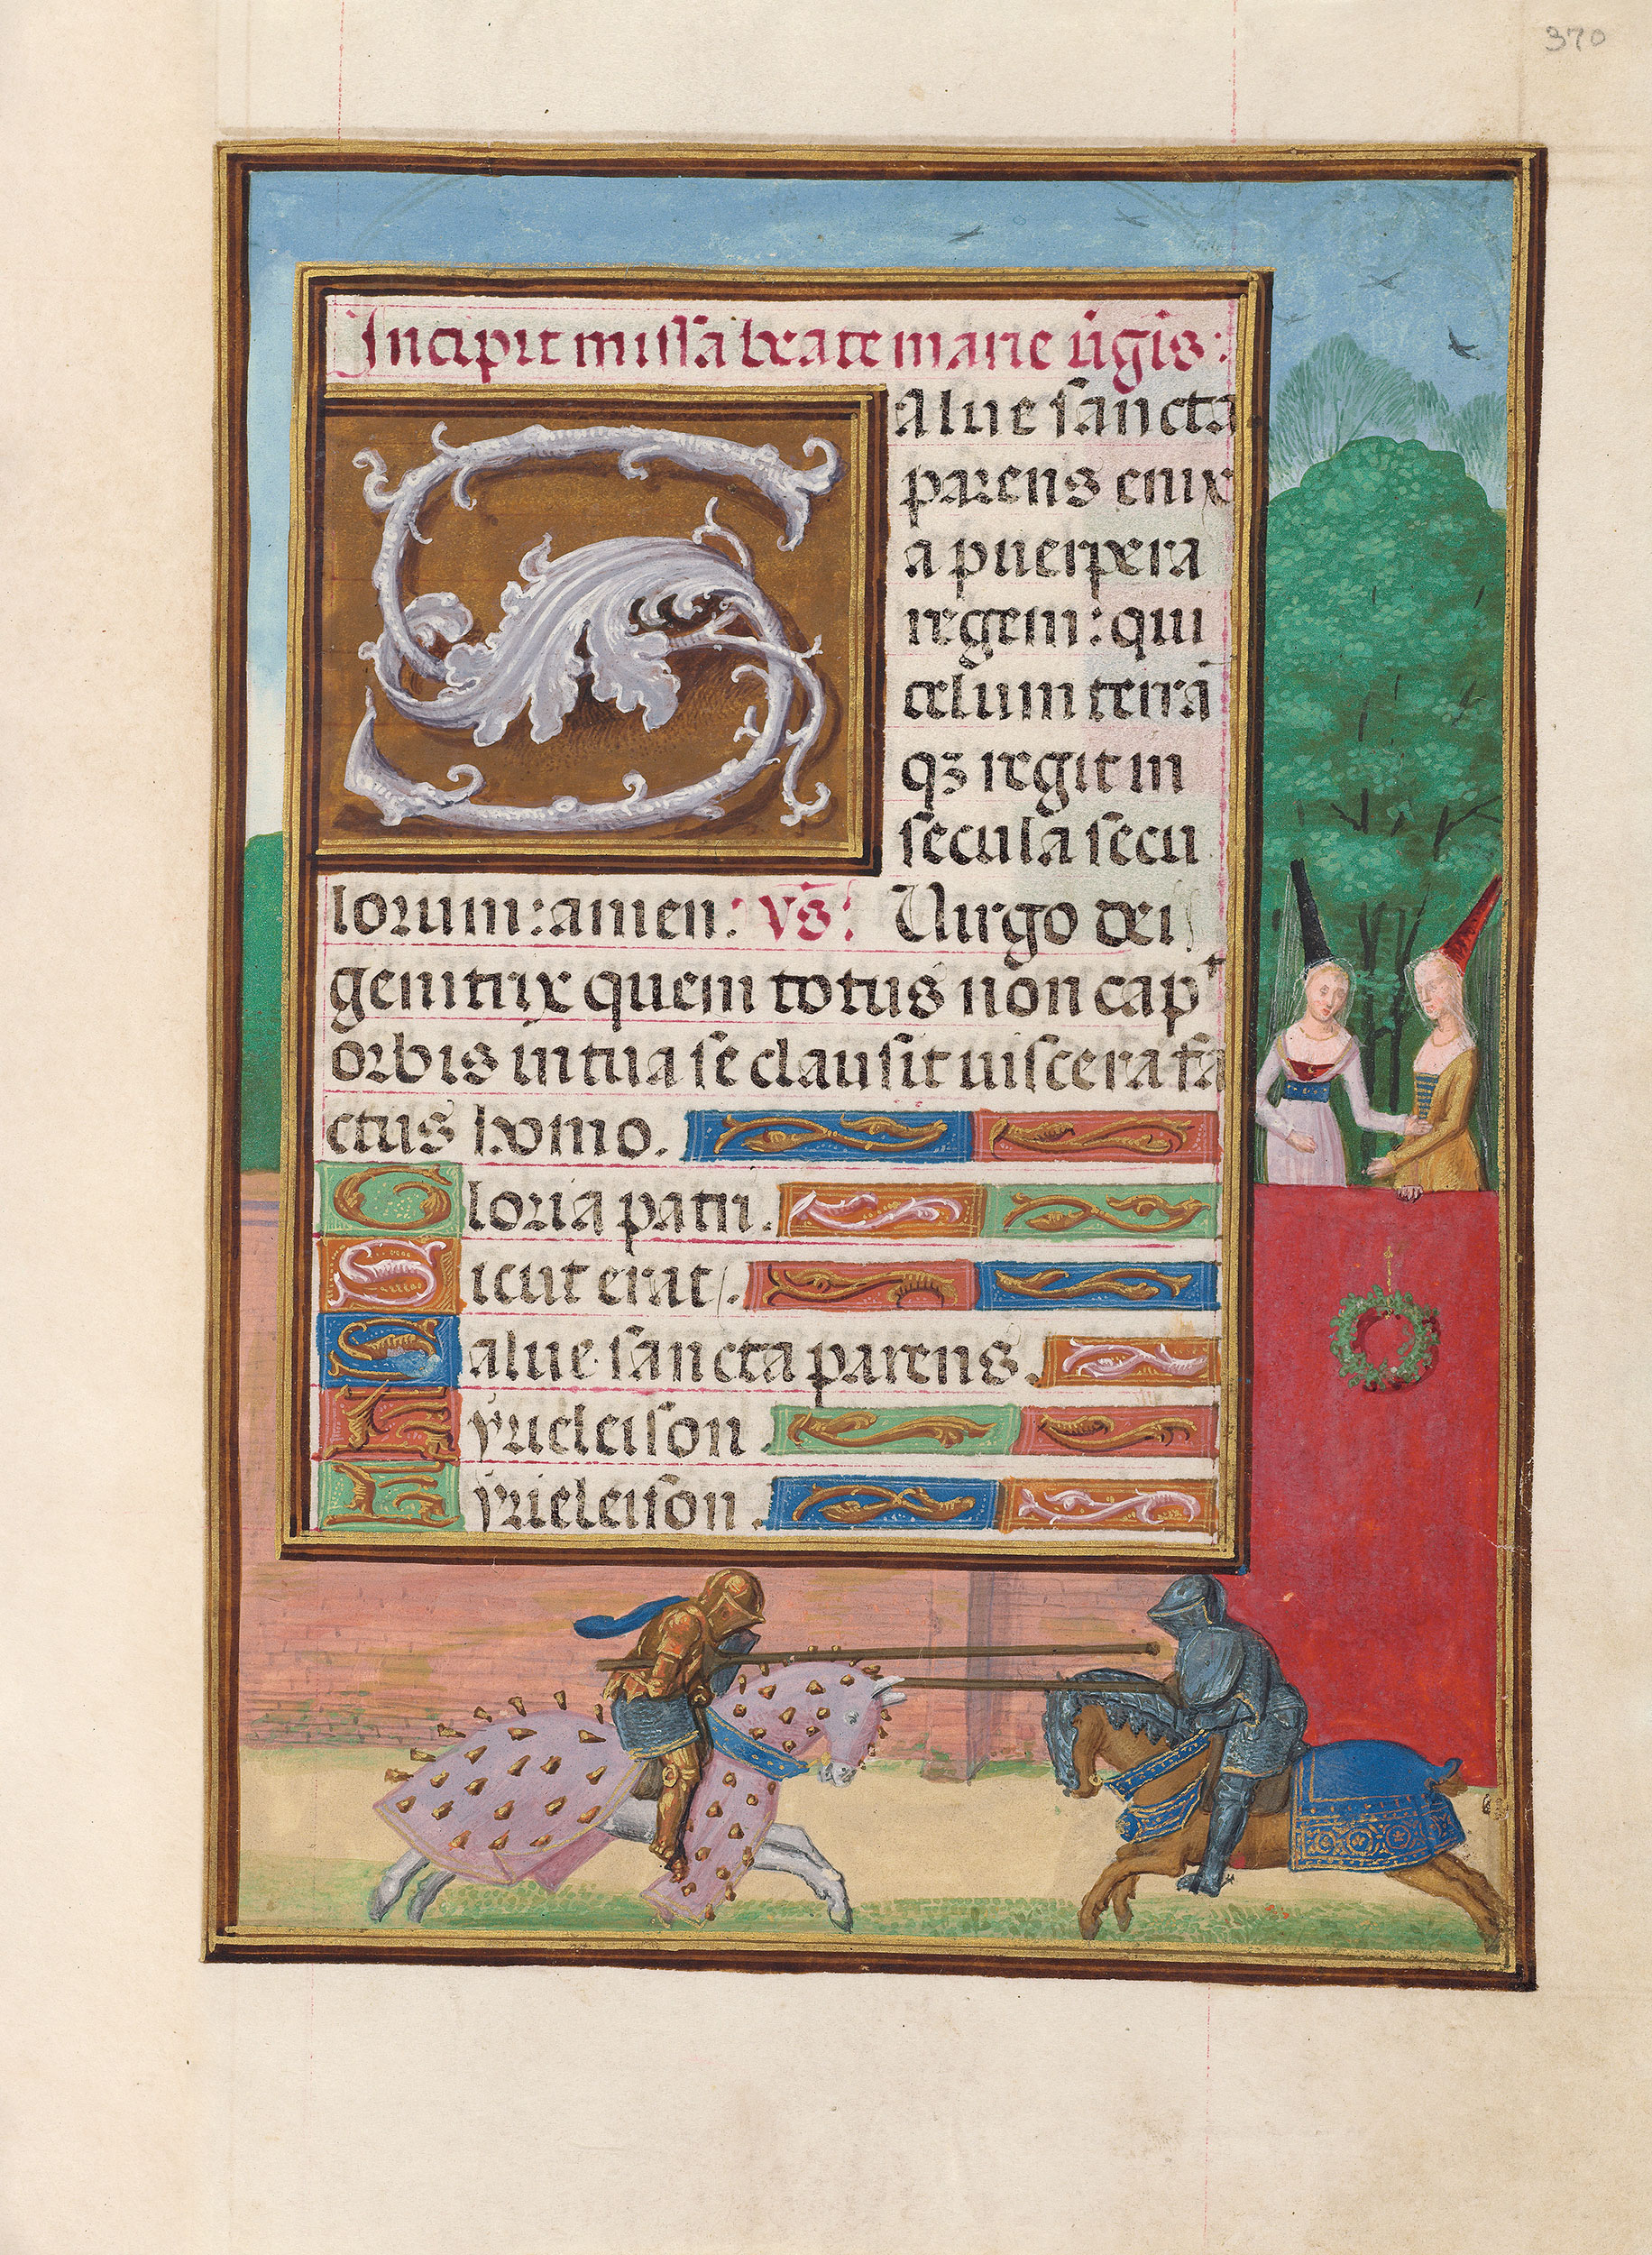 370
Incipit missa beate marie v̄gīs:
Salue sancta
parens enix
a puerpera
regem: qui
celum terrā
qz regit in
secula secu
lorum: amen: vs̄: Uirgo dei
genitrix quem totus non capᵗ
orbis in tua se clausit uiscera fa
ctus homo.
Gloria patri.
Sicut erat.
Salue sancta parens.
Kyrieleison.
Kyrieleison.